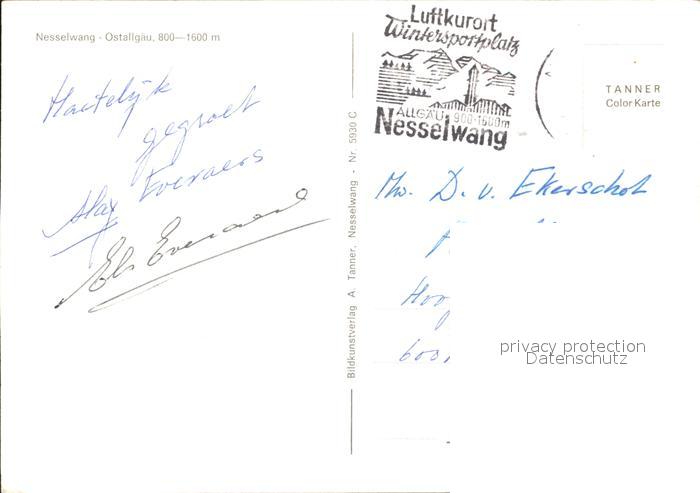 Nesselwang - Ostallgäu, 800—1600 m
Hartelijk
gegroet
Everaers
Els Everaers
Bildkunstverlag A. Tanner, Nesselwang - Nr. 5930 C
Luftkurort
Wintersportplatz
ALLGÄU 900-1600m
Nesselwang
TANNER
Color Karte
D. v. Ekerschot
privacy protection
Datenschutz